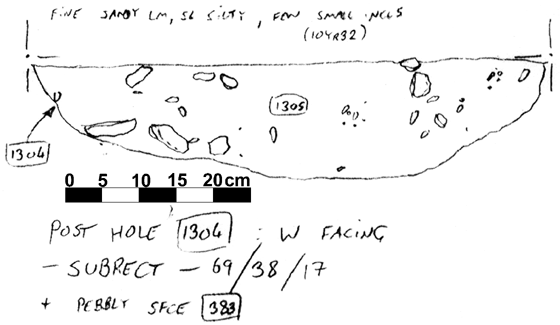 FINE SANDY LM, SL SILTY, FEW SMALL INCLS
(10YR32)
1305
1304
0 5 10 15 20cm
POST HOLE 1304 : W FACING
- SUBRECT - 69/38/17
+ PEBBLY SFCE 383